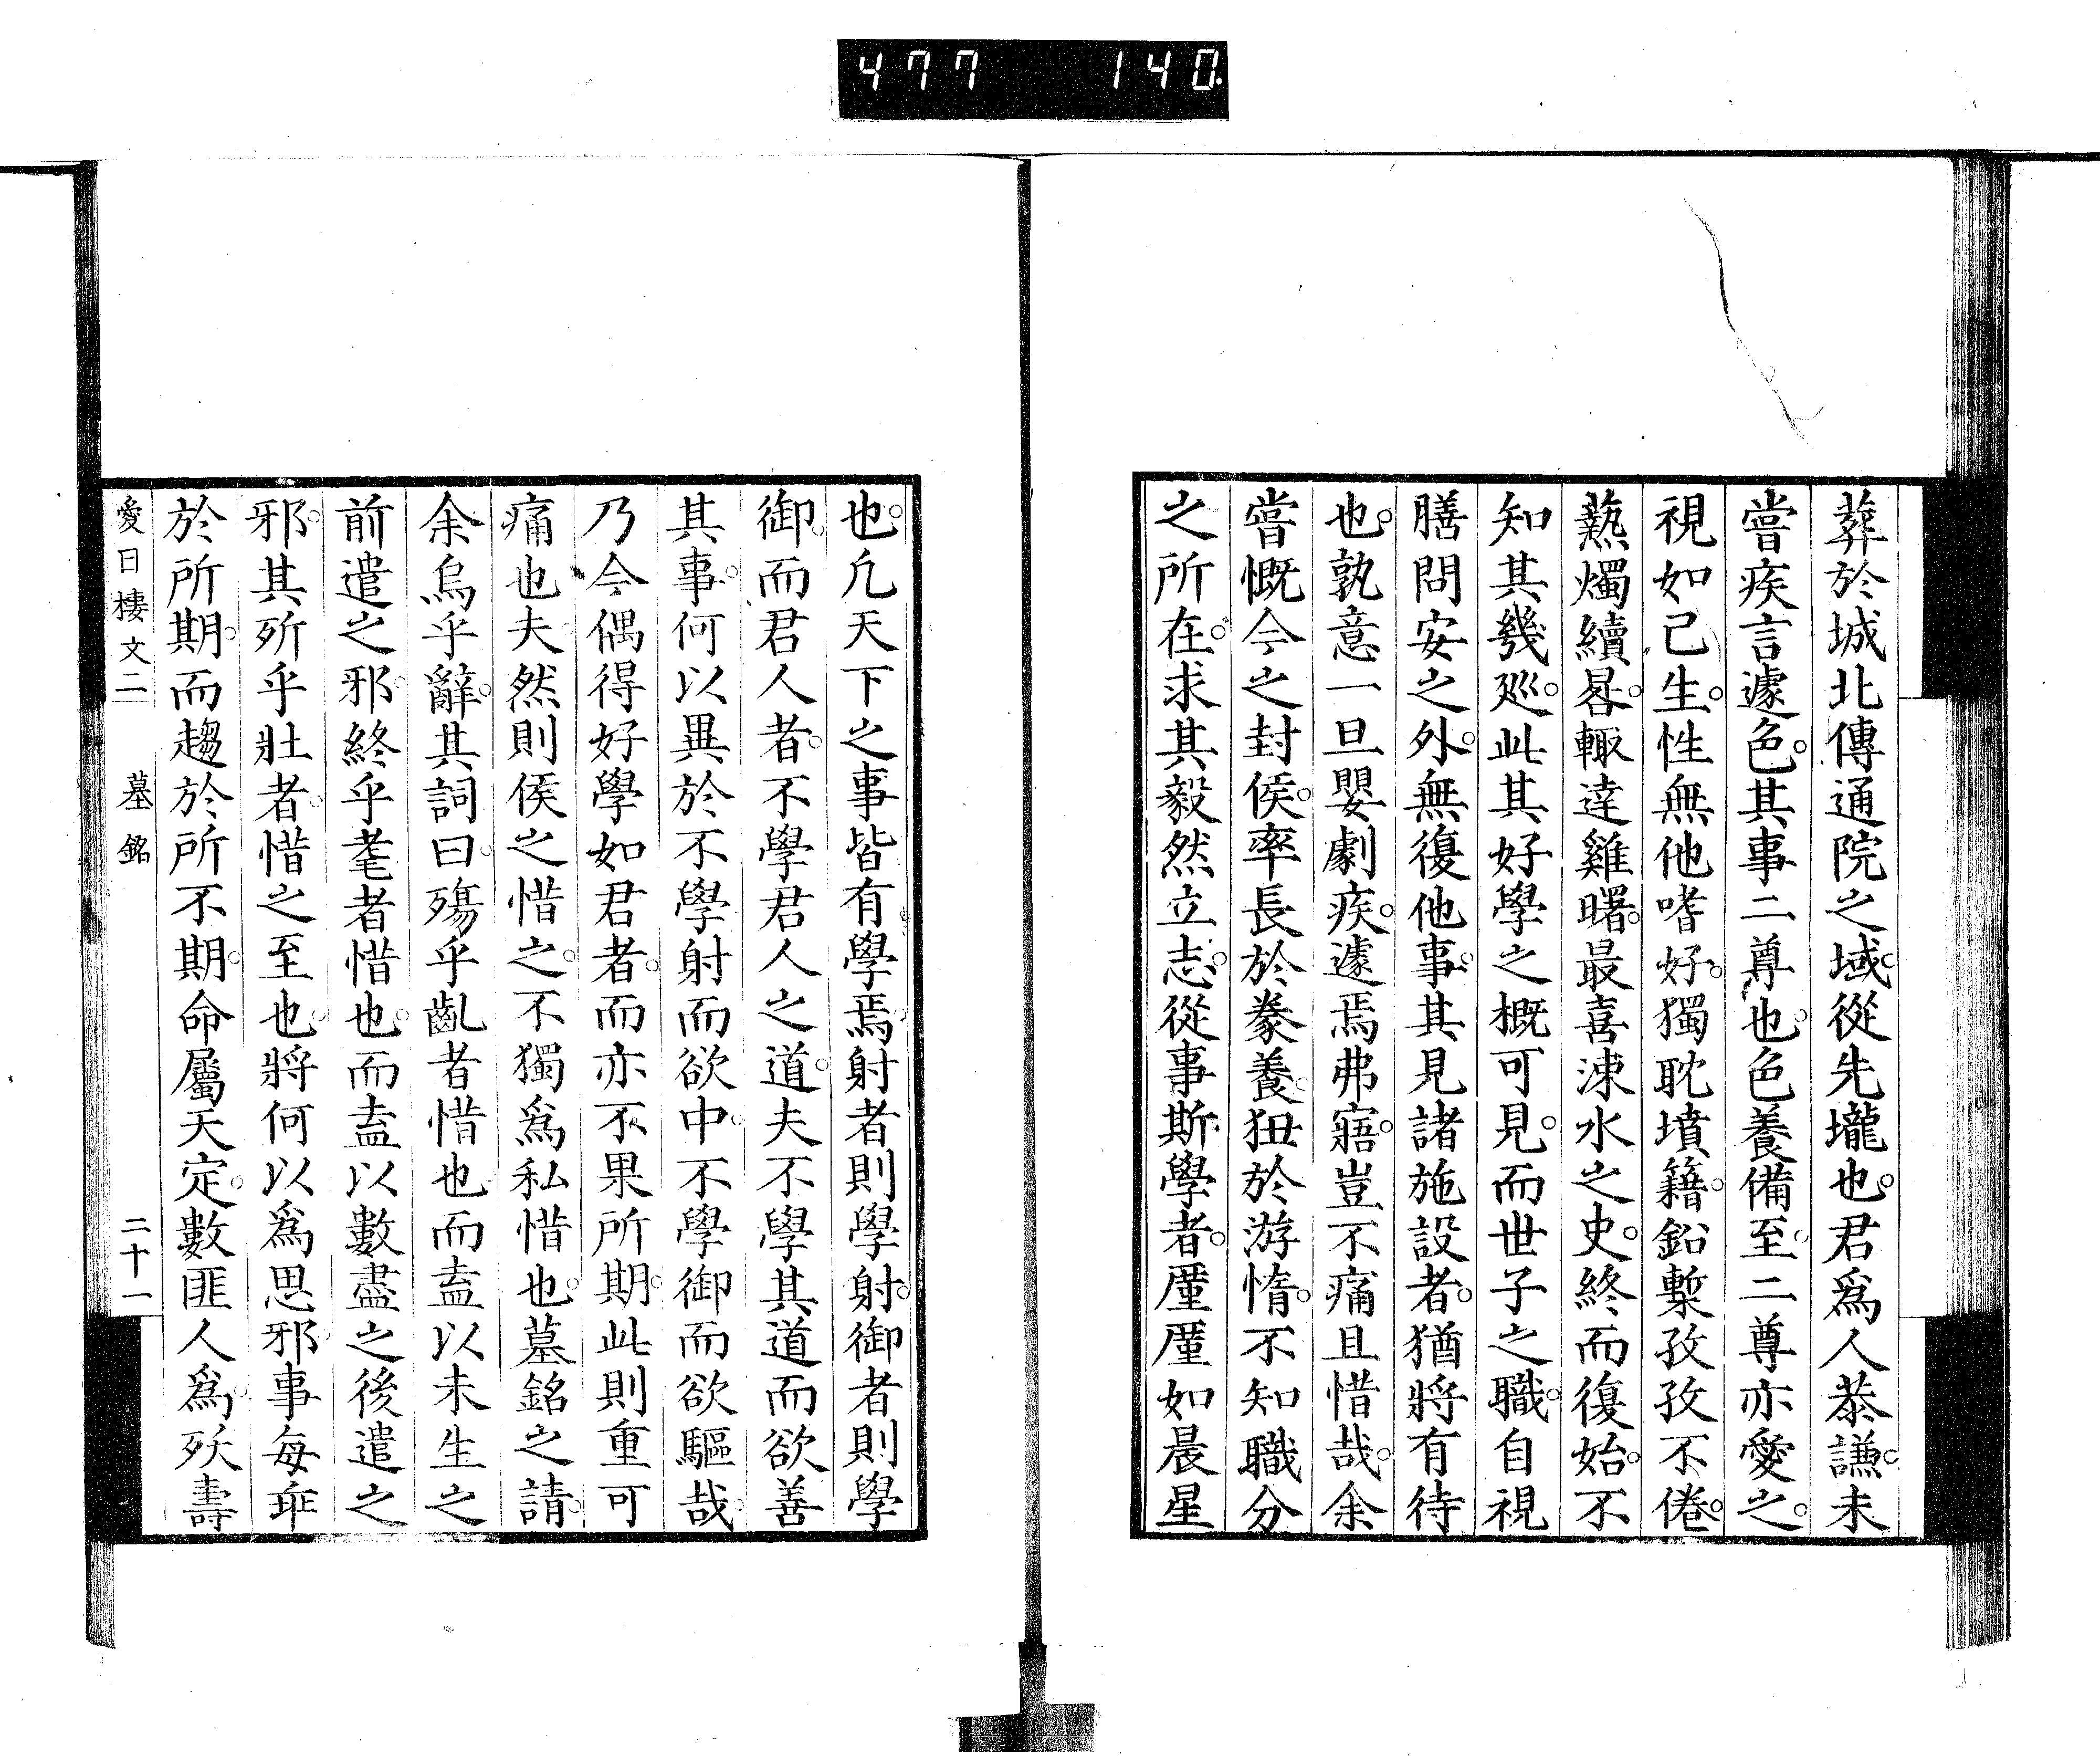 477 140
葬於城北傳通院之域。從先壠也。君爲人恭謙。未
嘗疾言遽色。其事二尊也。色養備至。二尊亦愛之。
視如己生。性無他嗜好。獨耽墳籍。鉛槧孜孜不倦。
爇燭續晷。輙達雞曙。最喜涑水之史。終而復始。不
知其幾廵。此其好學之概可見。而世子之職。自視
膳問安之外。無復他事。其見諸施設者。猶將有待
也。孰意一旦嬰劇疾。遽焉弗寤。豈不痛且惜哉。余
嘗慨今之封侯。率長於豢養。狃於游惰。不知職分
之所在。求其毅然立志。從事斯學者。厪厪如晨星
也。凢天下之事皆有學焉。射者則學射。御者則學
御。而君人者。不學君人之道。夫不學其道而欲善
其事。何以異於不學射而欲中。不學御而欲驅哉。
乃今偶得好學如君者。而亦不果所期。此則重可
痛也夫。然則侯之惜之。不獨爲私惜也。墓銘之請。
余烏乎辭。其詞曰。殤乎齓者惜也。而盍以未生之
前遣之邪。終乎耄者惜也。而盍以數盡之後遣之
邪。其歽乎壯者。惜之至也。將何以爲思邪。事每乖
於所期。而趨於所不期。命屬天定。數匪人爲。殀壽
愛日樓文二 墓銘 二十一